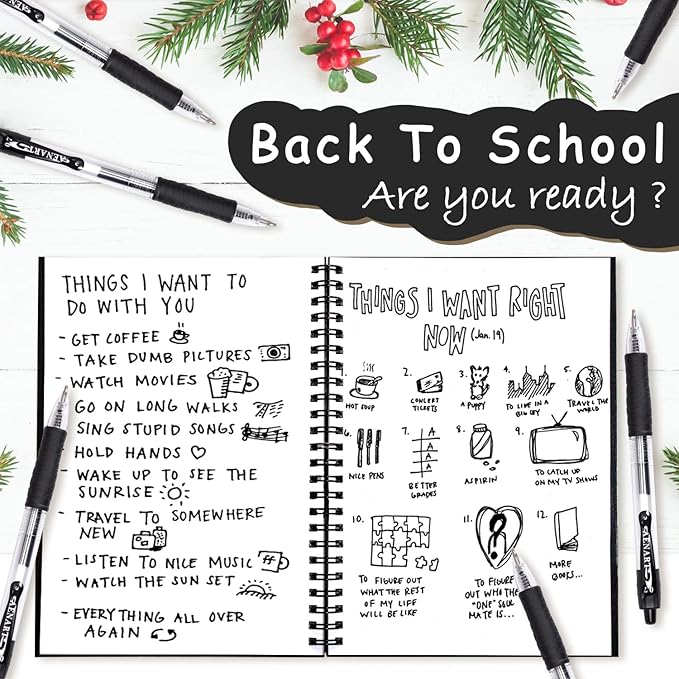 Back To School
Are you ready ?
AENART
AENART
THINGS I WANT TO
DO WITH YOU
- GET COFFEE
- TAKE DUMB PICTURES
- WATCH MOVIES
GO ON LONG WALKS
SING STUPID SONGS
HOLD HANDS
- WAKE UP TO SEE THE
SUNRISE
- TRAVEL TO SOMEWHERE
NEW
- LISTEN TO NICE MUSIC
- WATCH THE SUN SET
- EVERYTHING ALL OVER
AGAIN
THINGS I WANT RIGHT
NOW (Jan. 19)
1.
HOT SOUP
2.
CONCERT
TICKETS
3.
A PUPPY
4.
TO LIVE IN A
BIG CITY
5.
TRAVEL THE
WORLD
6.
NICE PENS
7.
A
A
A
A
BETTER
GRADES
8.
ASPIRIN
9.
TO CATCH UP
ON MY TV SHOWS
10.
TO FIGURE OUT
WHAT THE REST
OF MY LIFE
WILL BE LIKE
11.
TO FIGURE
OUT WHO THE
"ONE" SOUL
MATE IS...
12.
MORE
BOOKS...
AENART
AENART